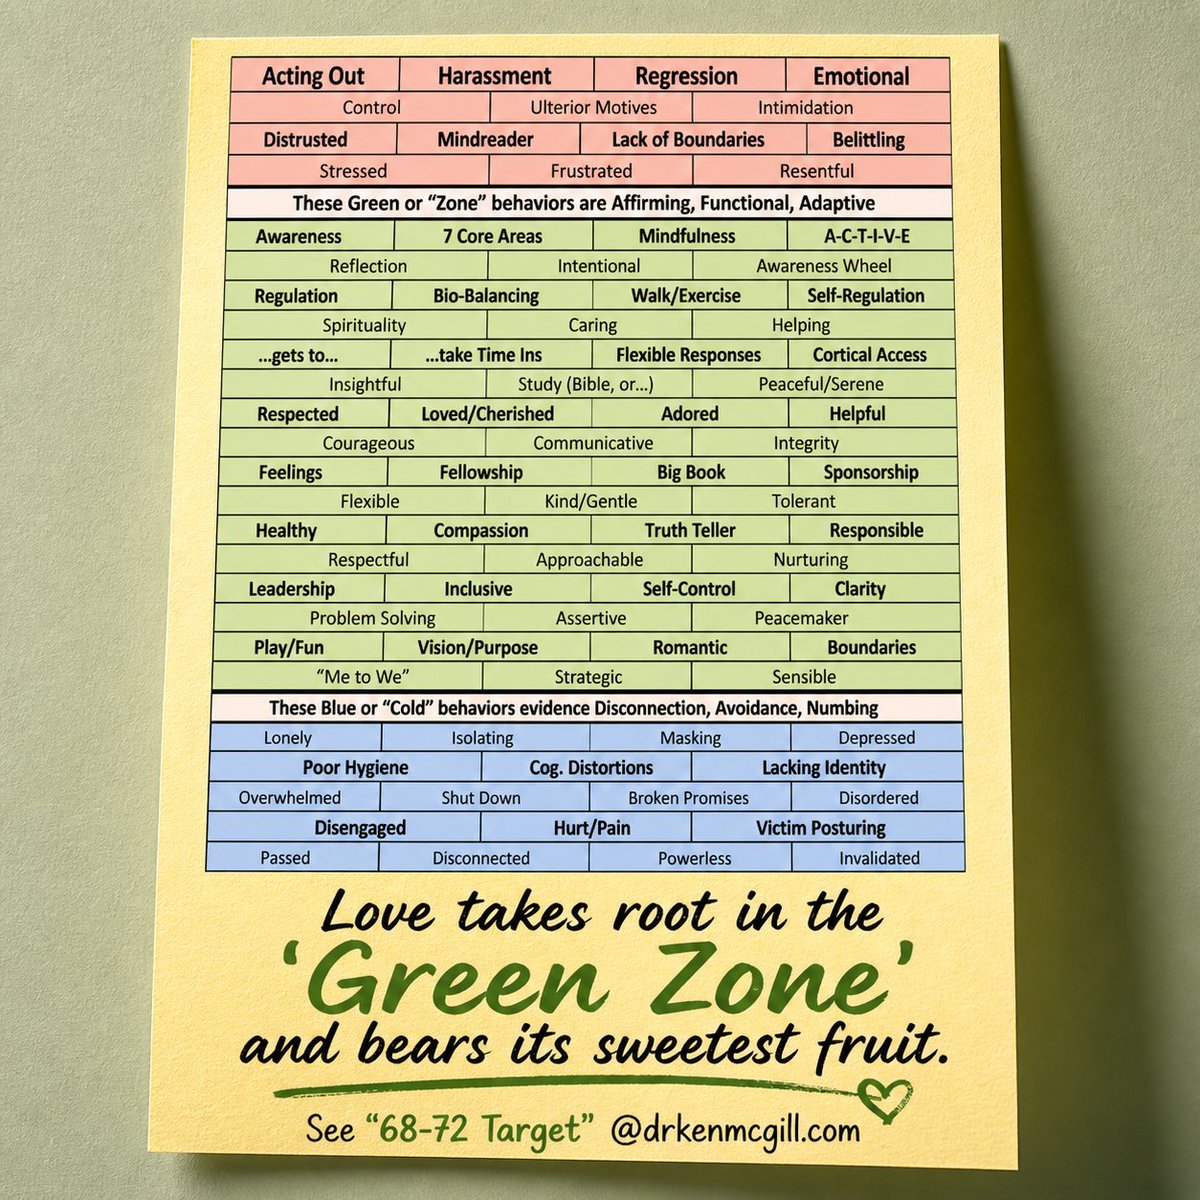 Acting Out Harassment Regression Emotional
Control Ulterior Motives Intimidation
Distrusted Mindreader Lack of Boundaries Belittling
Stressed Frustrated Resentful
These Green or “Zone” behaviors are Affirming, Functional, Adaptive
Awareness 7 Core Areas Mindfulness A-C-T-I-V-E
Reflection Intentional Awareness Wheel
Regulation Bio-Balancing Walk/Exercise Self-Regulation
Spirituality Caring Helping
...gets to... ...take Time Ins Flexible Responses Cortical Access
Insightful Study (Bible, or...) Peaceful/Serene
Respected Loved/Cherished Adored Helpful
Courageous Communicative Integrity
Feelings Fellowship Big Book Sponsorship
Flexible Kind/Gentle Tolerant
Healthy Compassion Truth Teller Responsible
Respectful Approachable Nurturing
Leadership Inclusive Self-Control Clarity
Problem Solving Assertive Peacemaker
Play/Fun Vision/Purpose Romantic Boundaries
“Me to We” Strategic Sensible
These Blue or “Cold” behaviors evidence Disconnection, Avoidance, Numbing
Lonely Isolating Masking Depressed
Poor Hygiene Cog. Distortions Lacking Identity
Overwhelmed Shut Down Broken Promises Disordered
Disengaged Hurt/Pain Victim Posturing
Passed Disconnected Powerless Invalidated
Love takes root in the
‘Green Zone’
and bears its sweetest fruit.
See “68-72 Target” @drkenmcgill.com